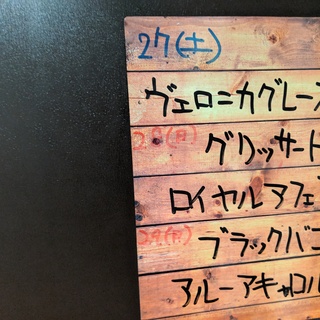 27(土)
ヴェロニカグレース
28(日) グリッサード
ロイヤルアフェ
29(月) ブラックバゴ
アルーアキャロル